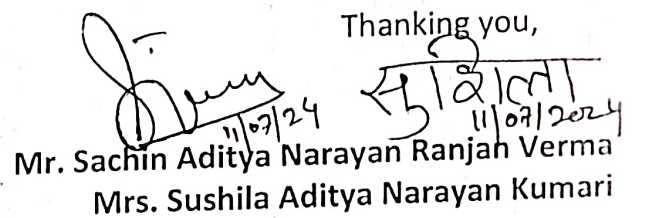 Thanking you,
सुशिला
11/07/24 11/07/2024
Mr. Sachin Aditya Narayan Ranjan Verma
Mrs. Sushila Aditya Narayan Kumari